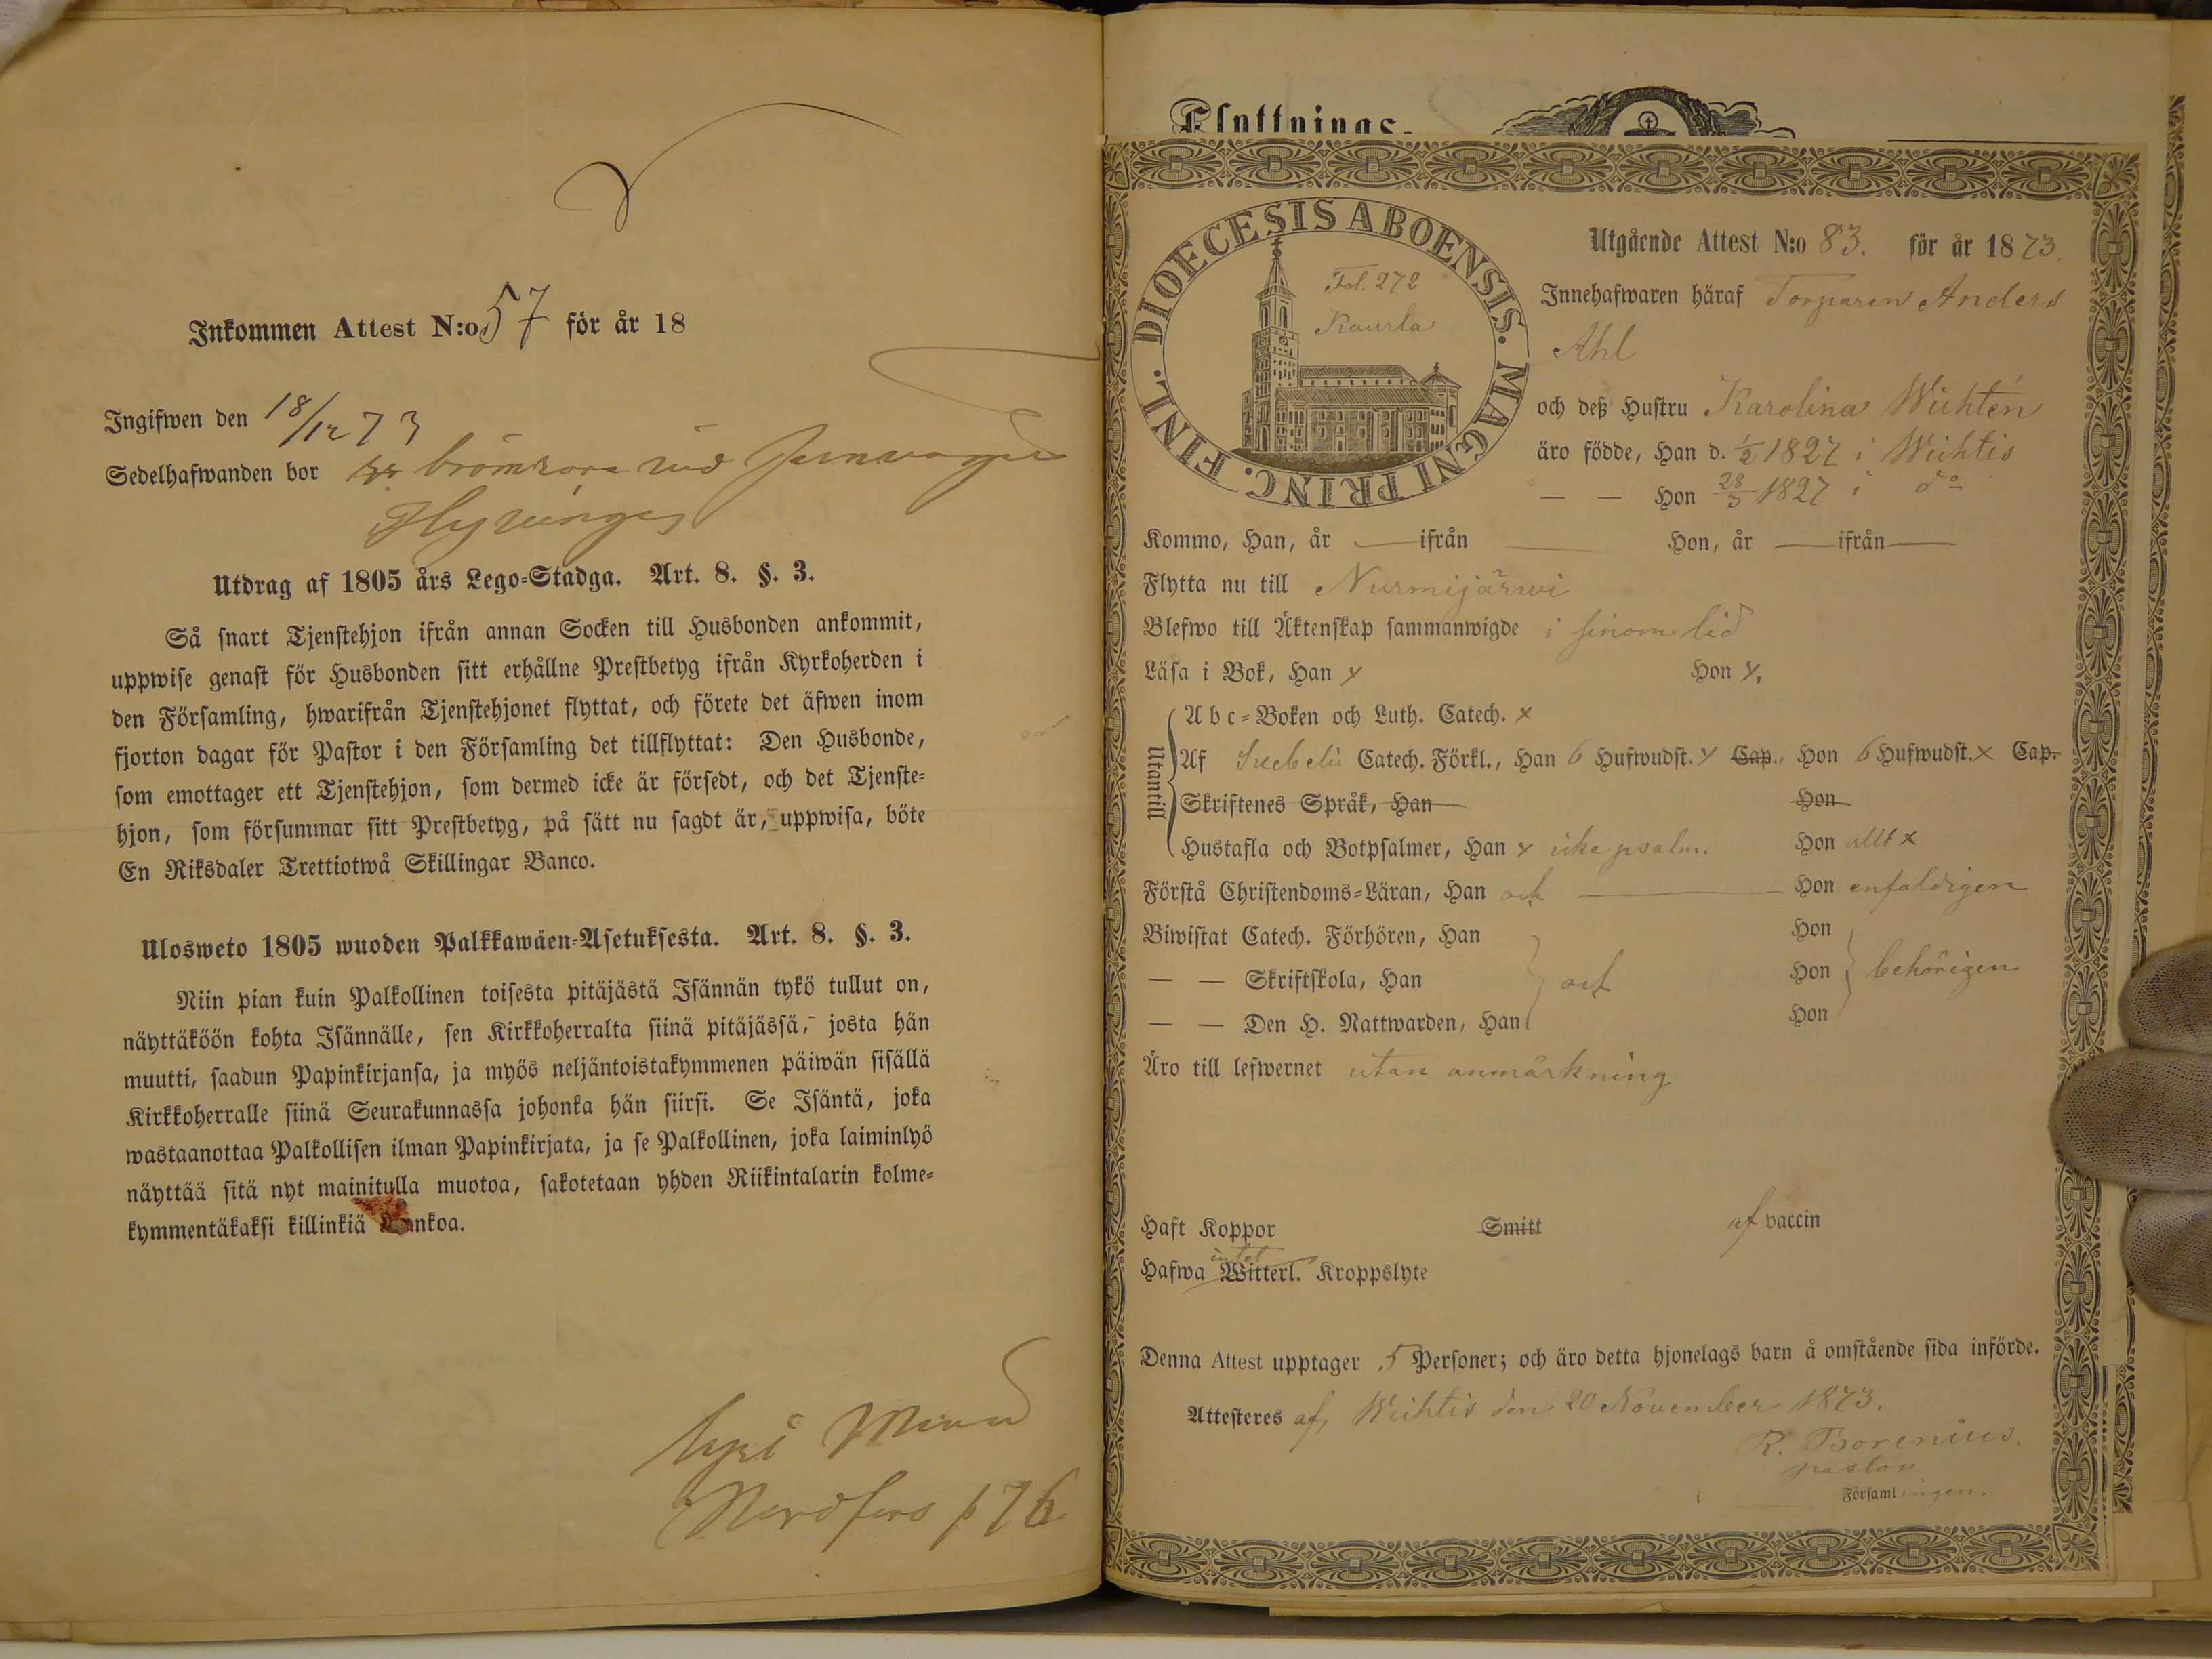 Inkommen Attest N:o 57 för år 18
Ingifwen den 18/12 73
Sedelhafwanden bor
Utdrag af 1805 års Lego-Stadga. Art. 8. §. 3.
Så snart Tjenstehjon ifrån annan Socken till Husbonden ankommit,
uppwise genast för Husbonden sitt erhållne Prestbetyg ifrån Kyrkoherden i
den Församling, hwarifrån Tjenstehjonet flyttat, och förete det äfwen inom
fjorton dagar för Pastor i den Församling det tillflyttat: Den Husbonde,
som emottager ett Tjenstehjon, som dermed icke är försedt, och det Tjenste-
hjon, som försummar sitt Prestbetyg, på sätt nu sagdt är, uppwisa, böte
En Riksdaler Trettiotwå Skillingar Banco.
Ulosweto 1805 wuoden Palkkawäen-Asetuksesta. Art. 8. §. 3.
Niin pian kuin Palkollinen toisesta pitäjästä Isännän tykö tullut on,
näyttäköön kohta Isännälle, sen Kirkkoherralta siinä pitäjässä, josta hän
muutti, saadun Papinkirjansa, ja myös neljäntoistakymmenen päiwän sisällä
Kirkkoherralle siinä Seurakunnassa johonka hän siirsi. Se Isäntä, joka
wastaanottaa Palkollisen ilman Papinkirjata, ja se Palkollinen, joka laiminlyö
näyttää sitä nyt mainitulla muotoa, sakotetaan yhden Riikintalarin kolme-
kymmentäkaksi killinkiä Bankoa.
Nordfors p 76
Flyttnings-
DIOECESIS ABOENSIS. MAGNI PRINC. FINL.
Fol. 272
Kaurla
Utgående Attest N:o 83. för år 1873.
Innehafwaren häraf Torparen Anders
Ahl
och deß Hustru Karolina Wichtén
äro födde, Han d. 1/2 1827 i Wichtis
— — Hon 28/3 1827 i do
Kommo, Han, år — ifrån — Hon, år — ifrån —
Flytta nu till Nurmijärwi
Blefwo till Äktenskap sammanwigde i sinom tid
Läsa i Bok, Han x Hon x.
Utantill
A b c-Boken och Luth. Catech. x
Af Svebelii Catech. Förkl., Han 6 Hufwudst. x Cap., Hon 6 Hufwudst. x Cap.
Skriftenes Språk, Han Hon
Hustafla och Botpsalmer, Han x icke psalm. Hon allt x
Förstå Christendoms-Läran, Han och — Hon enfaldigen
Biwistat Catech. Förhören, Han Hon
— — Skriftskola, Han och Hon behörigen
— — Den H. Nattwarden, Han Hon
Äro till lefwernet utan anmärkning
Haft Koppor Smitt af vaccin
intet
Hafwa Witterl. Kroppslyte
Denna Attest upptager 5 Personer; och äro detta hjonelags barn å omstående sida införde.
Attesteres af, Wichtis den 20 November 1873.
R. Borenius.
pastor
i — Församlingen.